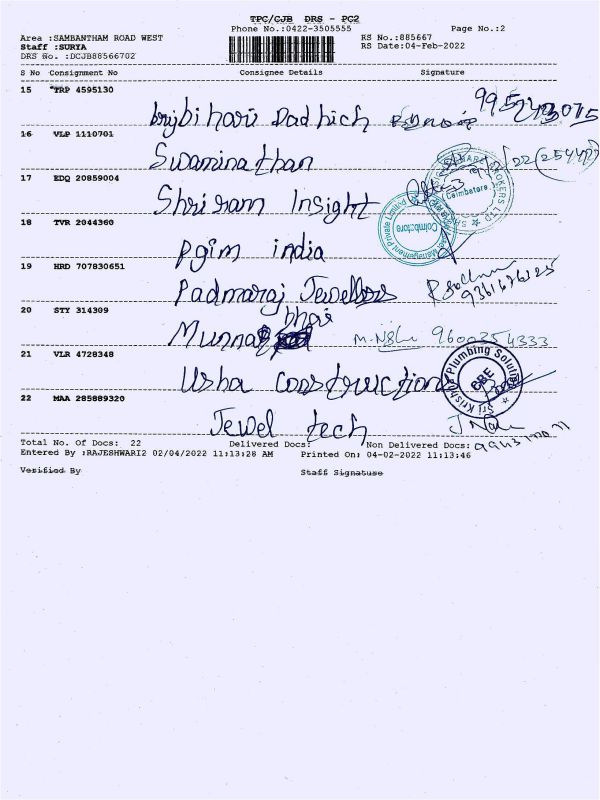 TPC/CJB DRS - PC2
Phone No.:0422-3505555 Page No.:2
Area :SAMBANTHAM ROAD WEST RS No.:885667
Staff :SURYA RS Date:04-Feb-2022
DRS No. :DCJB88566702
S No Consignment No Consignee Details Signature
15 *TRP 4595130
brijbihari Dadhich
16 VLP 1110701
Swaminathan
17 EDQ 20859004
Shriram Insight
Coimbatore
18 TVR 2044360
Coimbatore
pgim india
19 HRD 707830651
Padmaraj Jewellers
20 STY 314309
Munna bhai 9600354333
21 VLR 4728348
Usha Constructions
Sri Krishna Plumbing Solution
CBE
22 MAA 285889320
Jewel tech
Total No. Of Docs: 22 Delivered Docs: Non Delivered Docs:
Entered By :RAJESHWARI2 02/04/2022 11:13:28 AM Printed On: 04-02-2022 11:13:46
Verified By Staff Signature